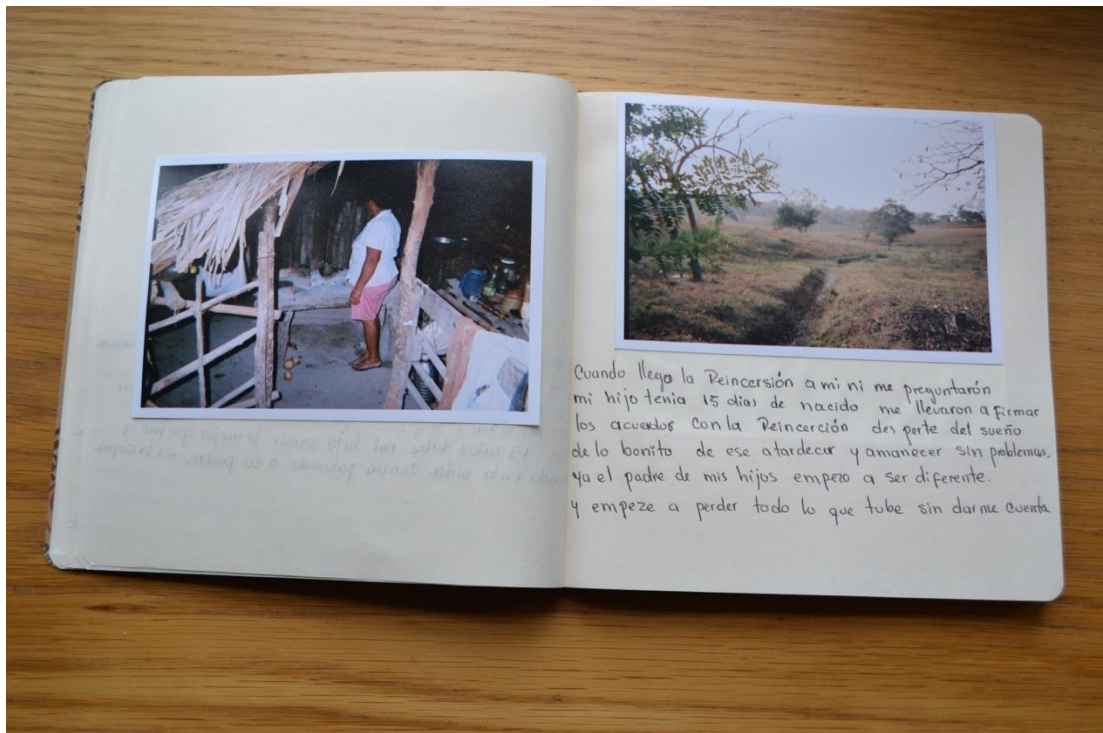 Cuando llego la Reincersión a mi ni me preguntarón
mi hijo tenia 15 dias de nacido me llevaron a firmar
los acuerdos con la Reincerción des perte del sueño
de lo bonito de ese atardecer y amanecer sin problemas.
ya el padre de mis hijos empezo a ser diferente.
y empeze a perder todo lo que tube sin darme cuenta